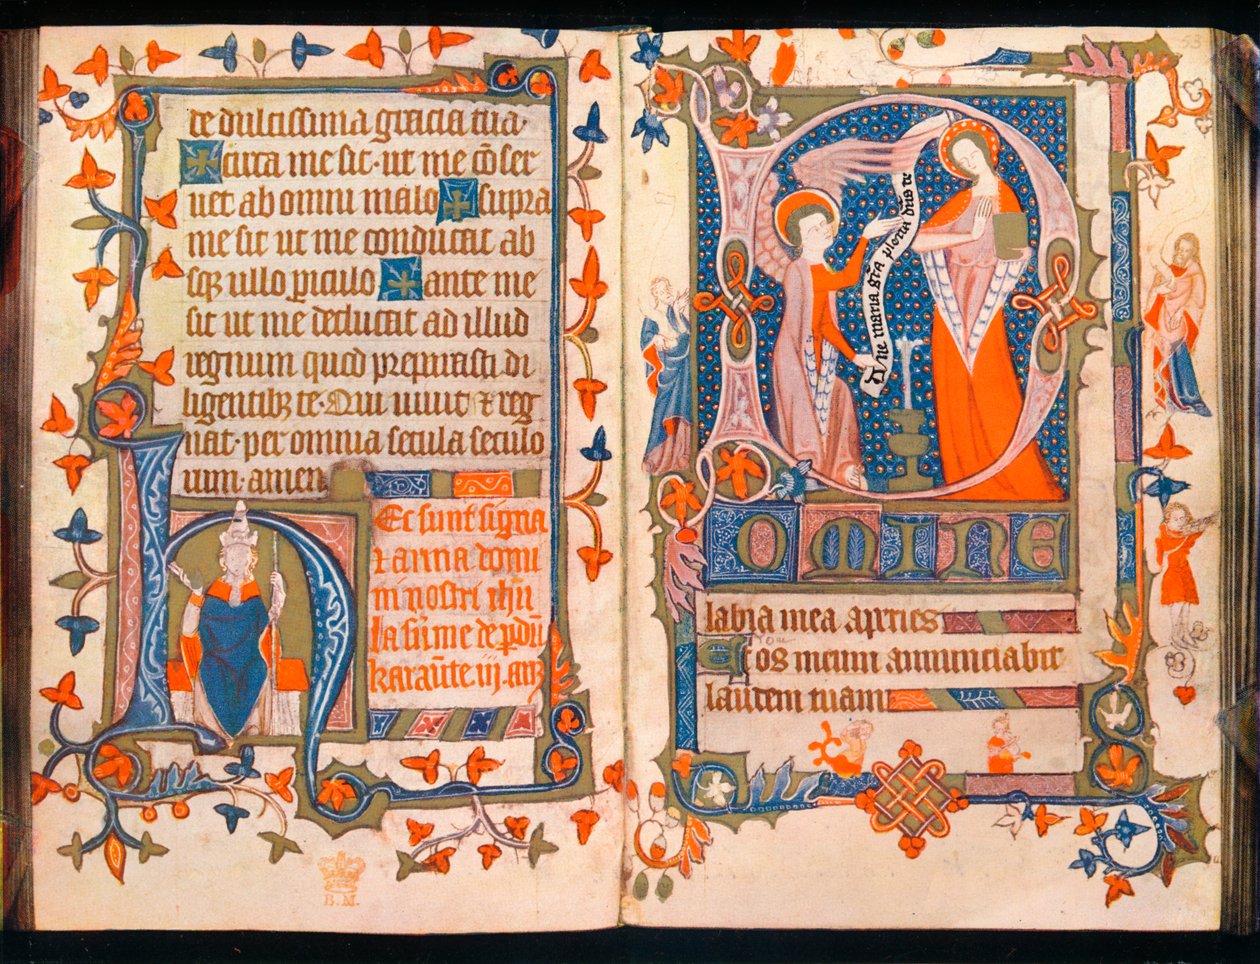 te dulcissima gracia tua.
circa me sit. ut me cōser
uet ab omni malo supra
me sit ut me conducat ab
sqꝫ ullo ꝑiculo ante me
sit ut me deducat ad illud
regnum quod preparasti di
ligentibꝫ te. Qui uiuit ⁊ reg
nat. per omnia secula seculo
rum. amen
Hec sunt signa
⁊ arma domi
ni nostri ihū
la sūme de ꝑdū
karaūte iij. anꝫ
B.M.
53
Aue maria gr̄a plena dn̄s te
DOMINE
labia mea apries
Et os meum annunciabit
laudem tuam